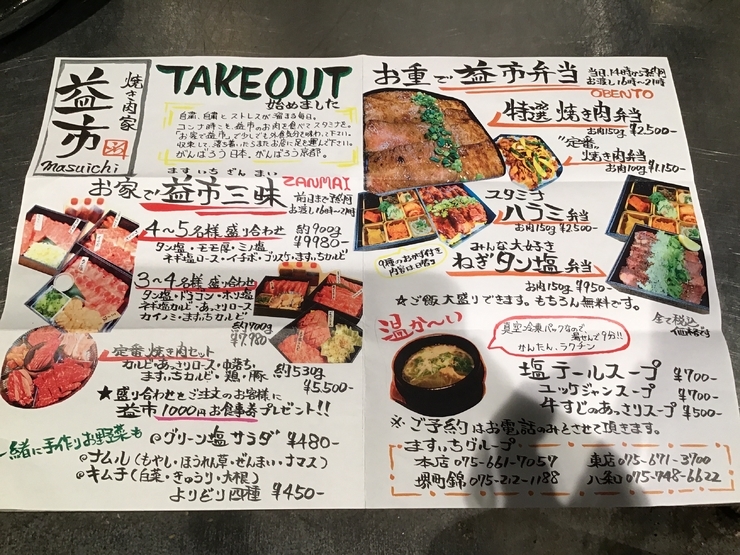 焼き肉家
益市
masuichi
TAKEOUT
始めました
自粛、自粛とストレスが溜まる毎日。
コンナ時こそ、益市のお肉を食べてスタミナを。
「お家で益市」で少しでも外食気分を味わって下さい。
収束して、落ち着いたらまたお店に足を運んで下さい。
がんばろう日本、がんばろう京都。
ますいちざんまい
お家で益市三昧 ZANMAI
前日まで予約
お渡し16時〜21時
4〜5名様 盛り合わせ 約900g
タン塩・モモ厚・ミノ塩 ¥9980-
ネギ塩ロース・イチボ・ブリスケ・ますいちカルビ
3〜4名様 盛り合わせ
タン塩・ドラゴン・ホソ塩
ネギ塩カルビ・あっさりロース
カイノミ・ますいちカルビ
約700g
¥7,980
定番 焼き肉セット
カルビ・あっさりロース・中落ち
ますいちカルビ・鶏・豚 約530g
¥5,500-
★盛り合わせをご注文のお客様に
益市1000円お食事券プレゼント!!
一緒に手作りお野菜も
@グリーン塩サラダ ¥480-
@ナムル(もやし・ほうれん草・ぜんまい・ナマス)
@キムチ(白菜・きゅうり・大根)
よりどり四種 ¥450-
お重で益市弁当
当日、14時から予約
お渡し16時〜21時
OBENTO
特選 焼き肉弁当
お肉150g ¥2500-
"定番"
焼き肉弁当
お肉100g ¥1,150-
スタミナ
ハラミ弁当
お肉150g ¥2500-
みんな大好き
ねぎタン塩弁当
お肉150g ¥950-
9種のおかず付き
内容は日替り
☆ご飯大盛りできます。もちろん無料です。
全て税込
価格
温か〜い
真空冷凍パックなので、
湯せんで9分!!
かんたん、ラクチン
塩テールスープ ¥700-
ユッケジャンスープ ¥700-
牛すじのあっさりスープ ¥500-
※ご予約はお電話のみとさせて頂きます。
ますいちグループ
本店 075-661-7057 東店 075-671-3700
堺町錦 075-212-1188 八条口 075-748-6622